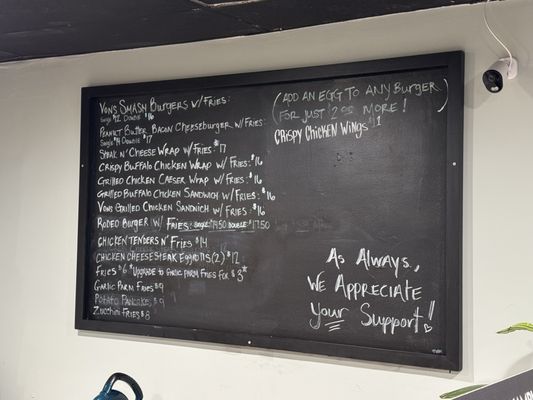 Vons Smash Burgers w/ Fries:
Single $12 Double $16
Peanut Butter Bacon Cheeseburger w/ Fries:
Single $14 Double $17
Steak n' Cheese Wrap w/ Fries: $17
Crispy Buffalo Chicken Wrap w/ Fries: $16
Grilled Chicken Caeser Wrap w/ Fries: $16
Grilled Buffalo Chicken Sandwich w/ Fries: $16
Vons Grilled Chicken Sandwich w/ Fries: $16
Rodeo Burger w/ Fries: Single $14.50 Double: $17.50
Chicken Tenders n' Fries $14
Chicken Cheesesteak Eggrolls (2) $12
Fries $6 *Upgrade to Garlic Parm Fries for $3*
Garlic Parm Fries $9
Potato Pancakes $9
Zucchini Fries $8
(Add an egg to any Burger
for just 2 more!)
Crispy Chicken Wings
As Always,
We Appreciate
Your Support!!